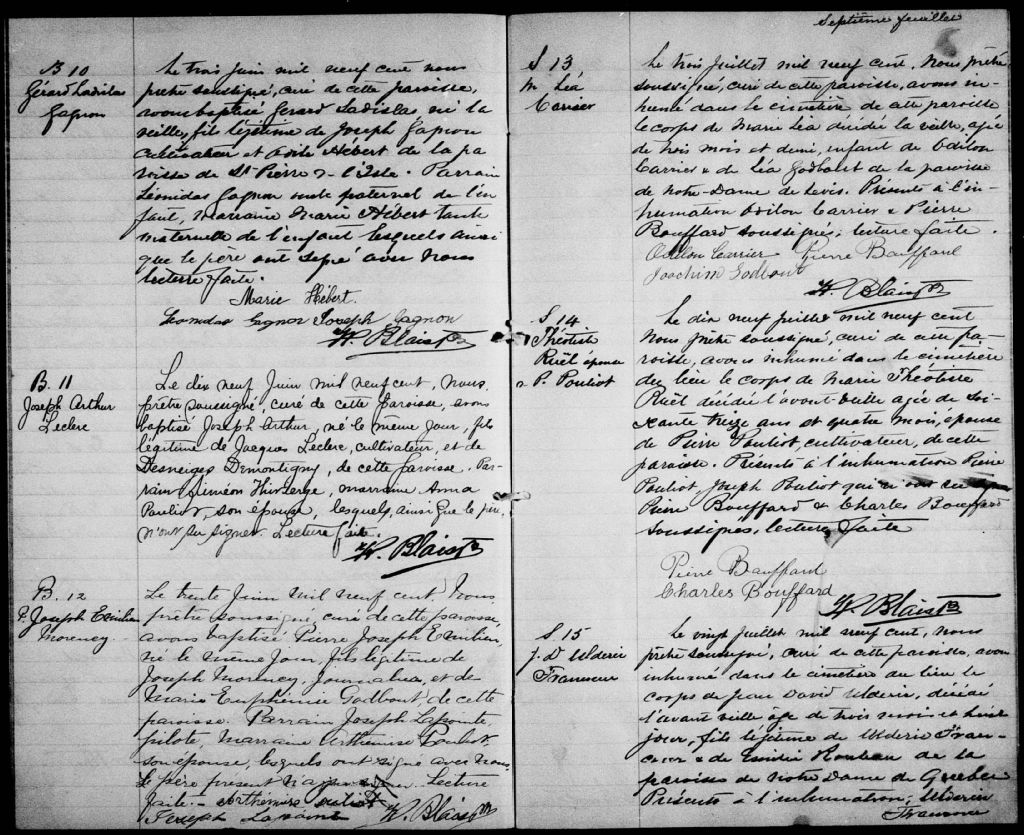 B 10
Gérard Ladislas
Gagnon
Le trois juin mil neuf cent nous
prêtre soussigné, curé de cette paroisse,
avons baptisé Gérard Ladislas né la
veille, fils légitime de Joseph Gagnon
cultivateur et Hébert de la pa
roisse de St Pierre I. l'Isle. Parrain
Léonidas Gagnon oncle paternel de l'en
fant, marraine Marie Hébert tante
maternelle de l'enfant lesquels ainsi
que le père ont signé avec nous
lecture faite.
Marie Hébert.
Leonidas Gagnon Joseph Gagnon
H. Blais Ptr
B. 11
Joseph Arthur
Leclerc
Le dix neuf Juin mil neuf cent, nous
prêtre soussigné, curé de cette paroisse, avons
baptisé Joseph Arthur, né le même jour, fils
légitime de Jacques Leclerc, cultivateur, et de
Desneiges Demontigny, de cette paroisse. Par-
rain Siméon Thivierge, marraine Anna
Pouliot, son épouse, lesquels, ainsi que le père
n'ont su signer. Lecture faite.
H. Blais Ptr
B. 12
P. Joseph Emilien
Morency
Le trente Juin mil neuf cent, Nous
prêtre soussigné, curé de cette paroisse,
avons baptisé Pierre Joseph Emilien,
né le même jour, fils légitime de
Joseph Morency, Journalier, et de
Marie Euphémie Godbout, de cette
paroisse. Parrain Joseph Lapointe,
pilote, Marraine Arthémise Pouliot,
son épouse, lesquels ont signé avec Nous
le père présent n'ayant signer. Lecture
faite. - Arthémise
Joseph Lapointe H. Blais Ptr
Septième feuillet
S 13
M. Léa
Carrier
Le trois juillet mil neuf cent, Nous prêtre
soussigné, curé de cette paroisse, avons in-
humé dans le cimetière de cette paroisse
le corps de Marie Léa décédée la veille, agée
de trois mois et demi, enfant de Odilon
Carrier & de Léa Godbout de la paroisse
de Notre-Dame de Levis. Présents à l'in-
humation Odilon Carrier & Pierre
Bouffard soussignés, lecture faite.
Odilon Carrier Pierre Bouffard
Joachim Godbout
H. Blais Ptr
S 14
Théotiste
Ruël épouse
P. Pouliot
Le dix neuf juillet mil neuf cent
Nous prêtre soussigné, curé de cette pa-
roisse, avons inhumé dans le cimetière
du lieu le corps de Marie Théotiste
Ruël décédée l'avant-veille agée de soi-
xante treize ans et quatre mois, épouse
de Pierre Pouliot, cultivateur, de cette
paroisse. Présents à l'inhumation Pierre
Pouliot, Joseph Pouliot qui n'ont su
Pierre Bouffard & Charles Bouffard
soussignés, lecture faite
Pierre Bouffard
Charles Bouffard
H. Blais Ptr
S 15
J. D. Ulderic
Francoeur
Le vingt juillet mil neuf cent, nous
prêtre soussigné, curé de cette paroisse, avons
inhumé dans le cimetière du lieu le
corps de Jean David Ulderic, décédé
l'avant veille âgé de trois mois et huit
jours, fils légitime de Ulderic Fran-
coeur & de Emilie Rouleau de la
paroisse de Notre Dame de Quebec
Présents à l'inhumation, Ulderic
Francoeur